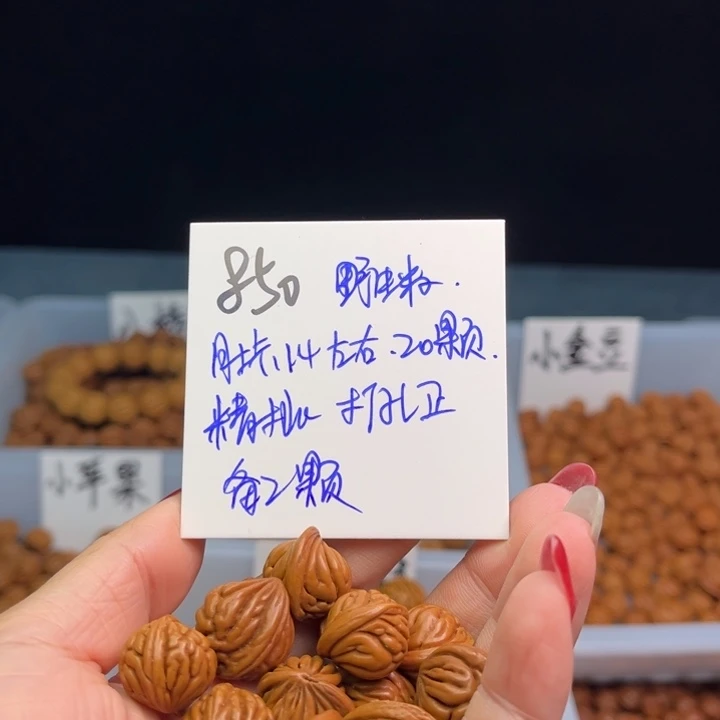 850 野生籽.
肚卡1.4左右.20颗.
精挑 打孔正
备2颗
小金豆
小苹果